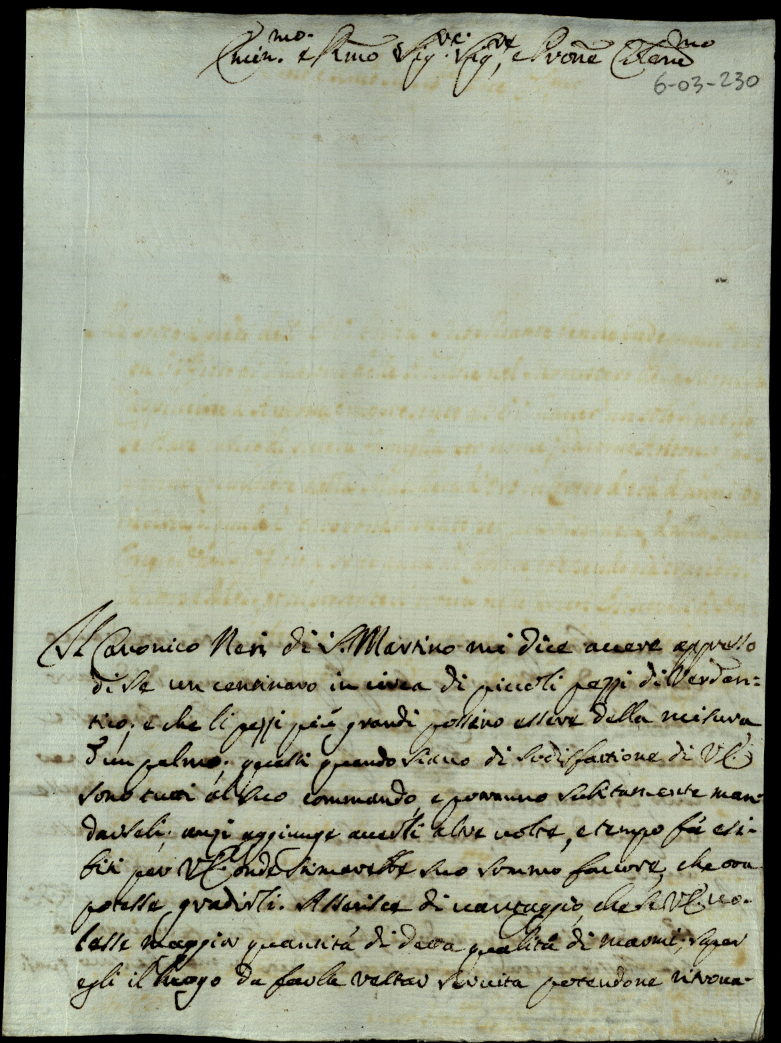 Emin.mo e Rmo Sig.re Sig.re, e Prone Colend.mo
6-03-230
Il Canonico Neri di S. Martino mi dice avere appresso
di se un centinaro in circa di piccoli pezzi di Verdan-
tico; e che li pezzi più grandi possino essere della misura
d'un palmo; questi quando siano di sodisfattione di VE
sono tutti al suo commando e potranno subitamente man-
darseli; anzi aggiunge averli altre volte, e tempo fà esi-
biti per VE onde stimarebbe suo sommo favore, che ora
potesse gradirli. Asserisce di vantaggio, che se VE vo-
lesse maggior quantità di detta qualità di marmi, saper
egli il luogo da farla restar servita potendone ritrova-